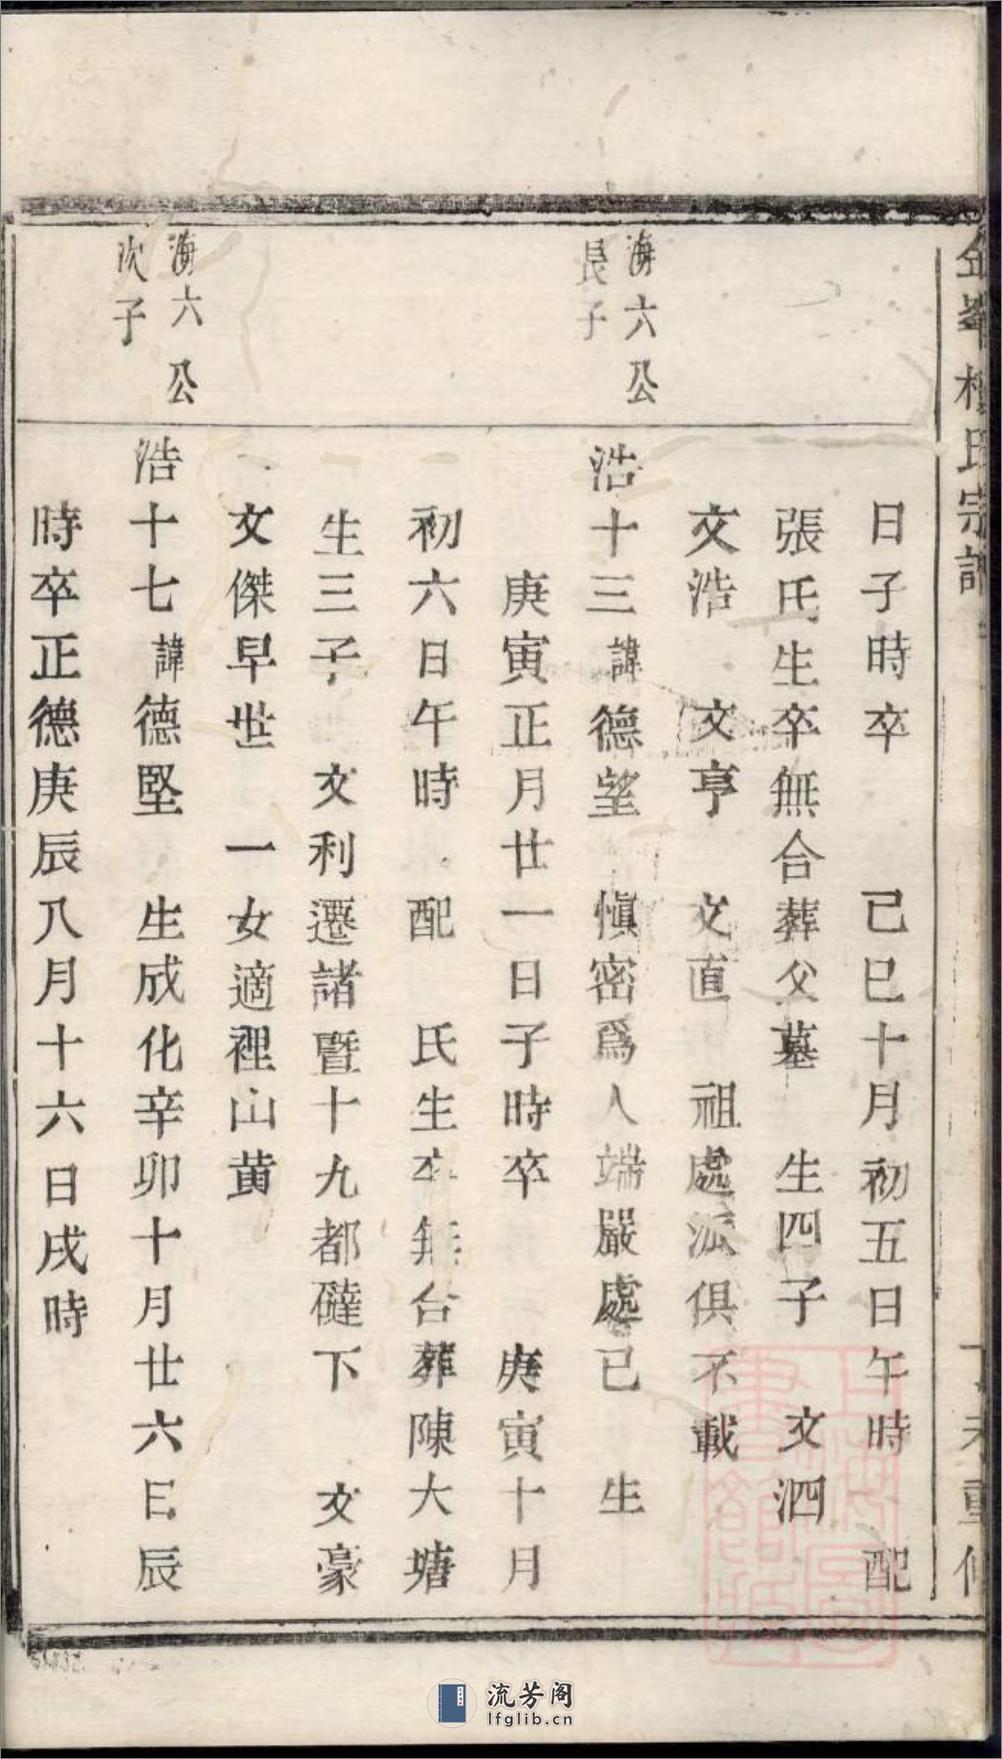 峯樓氏宗譜
未重修
日子時卒 己巳十月初五日午時 配
張氏生卒無合葬父墓 生四子 文泗
文浩 文亨 文直 祖處派俱不載
海六公
長子
浩十三諱德望 慎密爲人端嚴處己 生
庚寅正月廿一日子時卒 庚寅十月
初六日午時 配 氏生卒無合葬陳大塘
生三子 文利遷諸暨十九都礶下 文豪
文傑早世 一女適裡山黄
海六公
次子
浩十七諱德堅 生成化辛卯十月廿六日辰
時卒正德庚辰八月十六日戌時
流芳阁
lfglib.cn